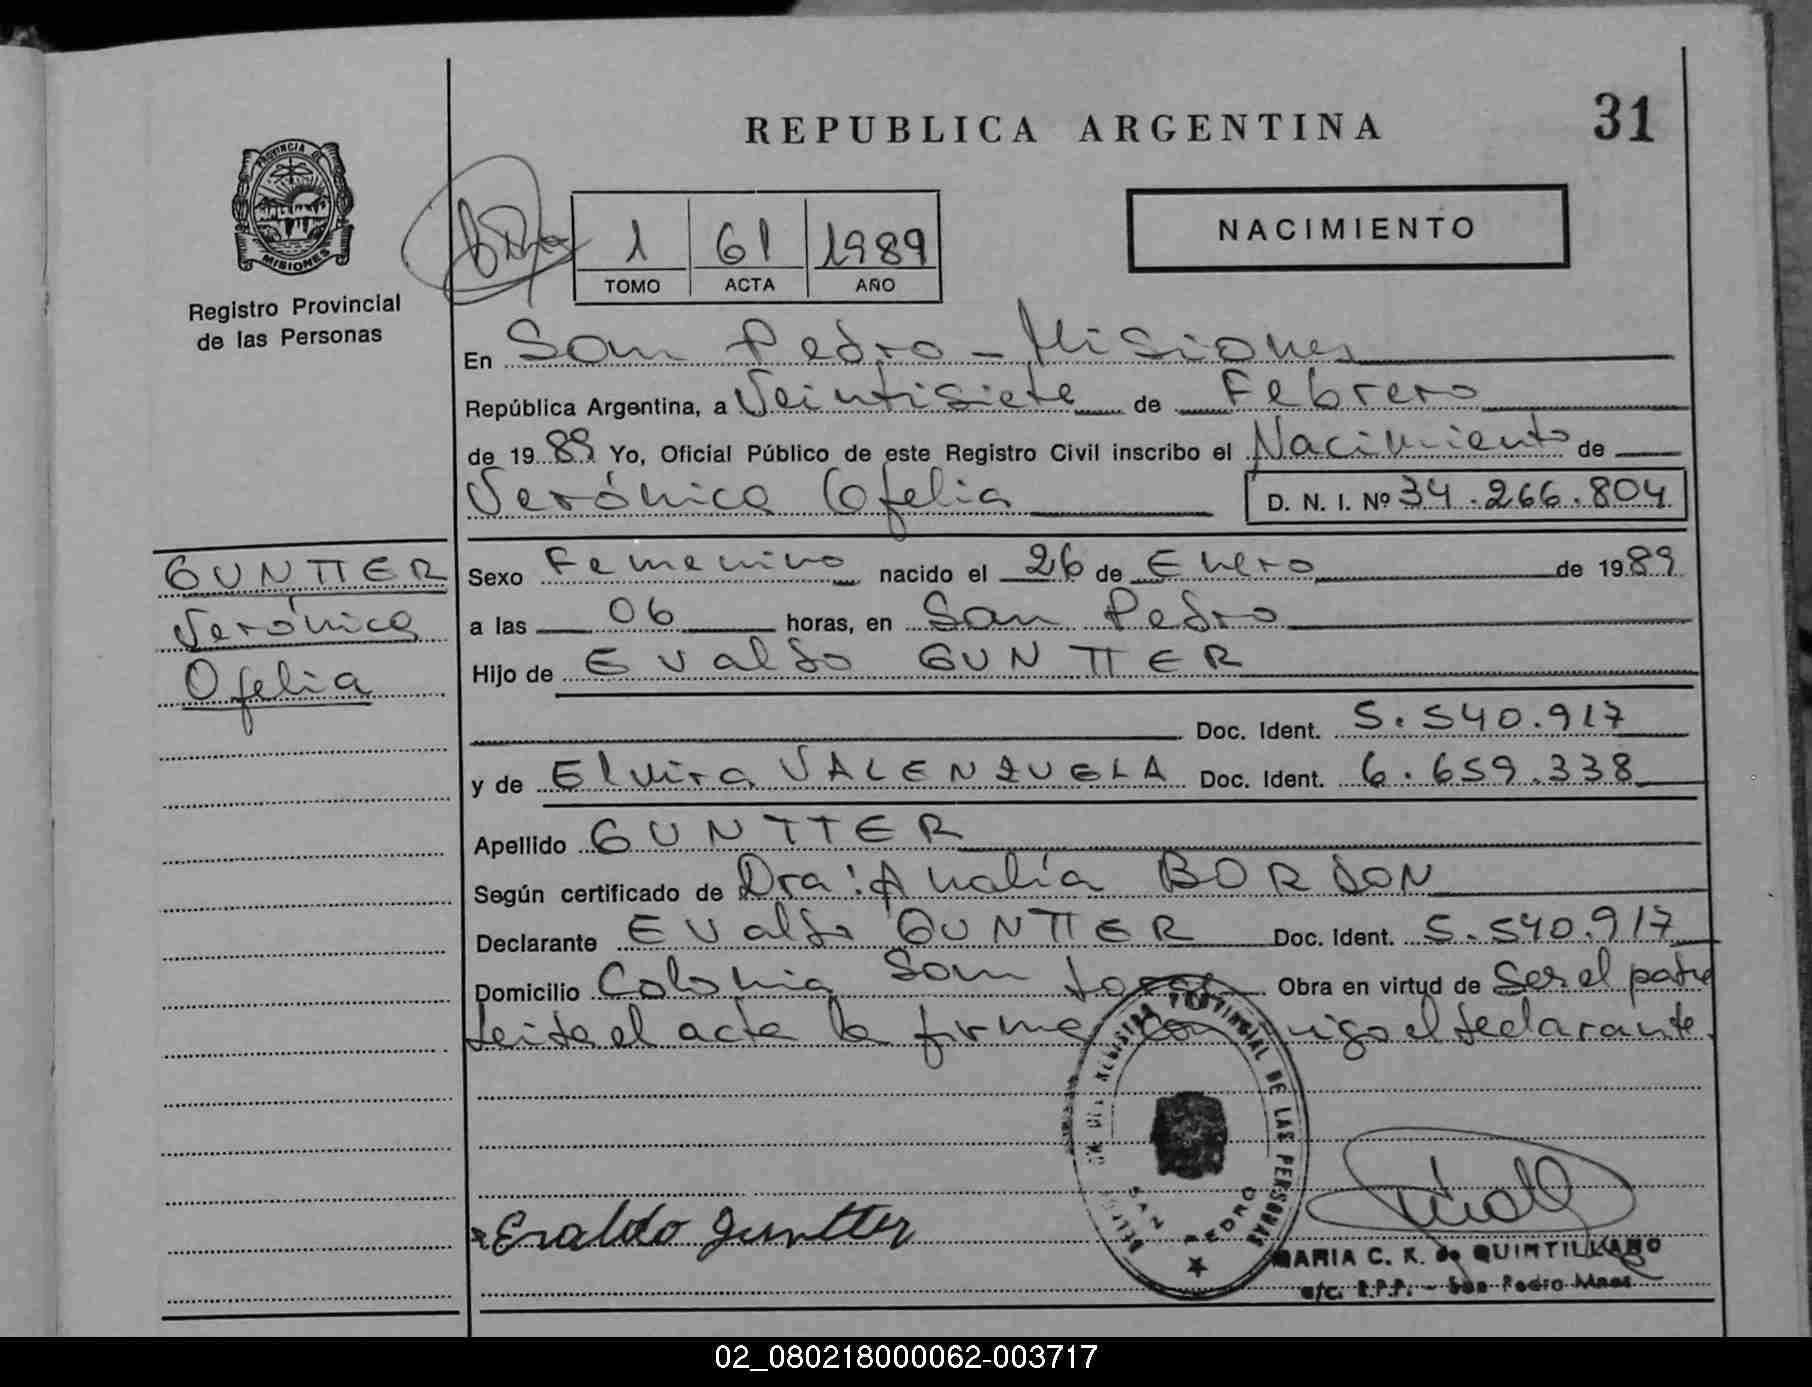 REPUBLICA ARGENTINA
31
PROVINCIA DE
MISIONES
Registro Provincial
de las Personas
1 61 1989
TOMO ACTA AÑO
NACIMIENTO
En San Pedro - Misiones
República Argentina, a Veintisiete de Febrero
de 1989 Yo, Oficial Público de este Registro Civil inscribo el Nacimiento de
Verónica Ofelia D. N. I. Nº 34.266.804
GUNTTER
Verónica
Ofelia
Sexo Femenino nacido el 26 de Enero de 1989
a las 06 horas, en San Pedro
Hijo de Evaldo GUNTTER
Doc. Ident. 5.540.917
y de Elvira VALENZUELA Doc. Ident. 6.659.338
Apellido GUNTTER
Según certificado de Dra: Analía BORDON
Declarante Evaldo GUNTTER Doc. Ident. 5.540.917
Domicilio Colonia San Jorge Obra en virtud de Ser el padre
Leida el acta la firma conmigo el declarante.
REGISTRO PROVINCIAL DE LAS PERSONAS
SAN PEDRO
Eraldo Guntter
MARIA C. K. de QUINTILLANO
a/c. R.P.P. - San Pedro Mnes.
02_080218000062-003717